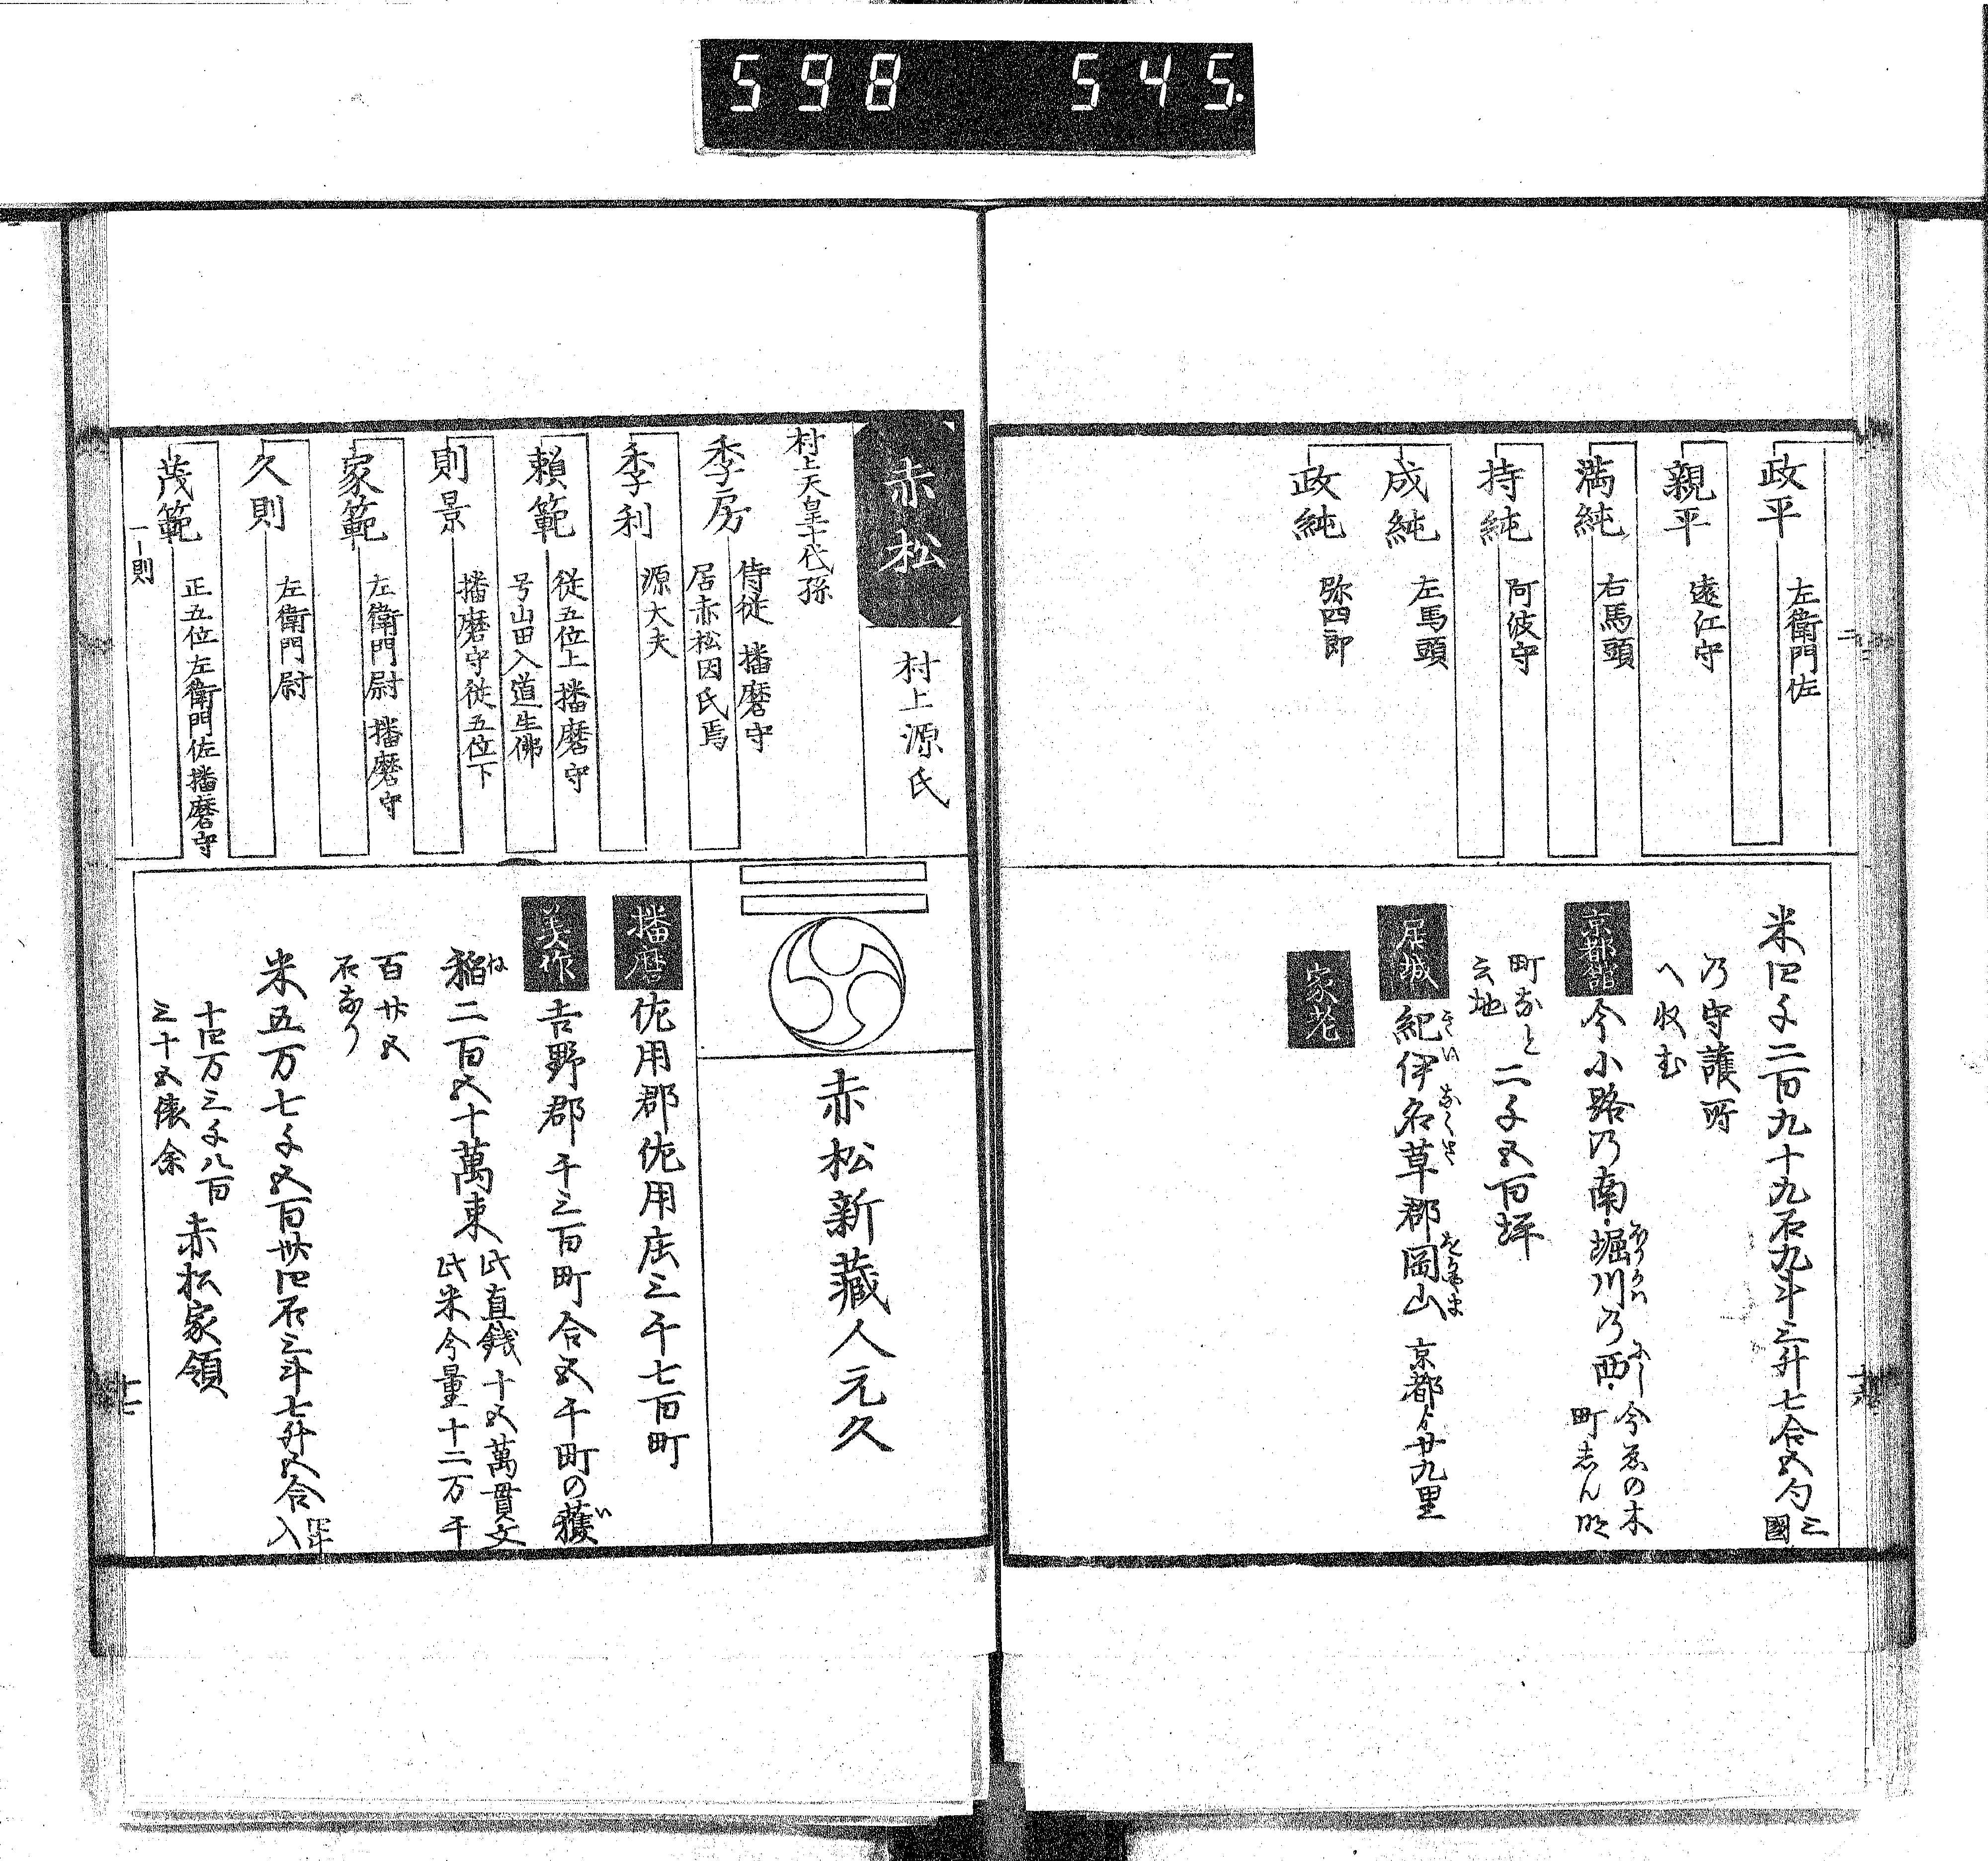 598 545.
政平 左衛門佐
親平 遠江守
満純 右馬頭
持純 阿波守
成純 左馬頭
政純 弥四郎
米四千二百九十九石九斗三升七合五勺 三國
乃守護所
へ收む
京都館 今小路乃南堀川乃西 今荒の木
町志ん
町なと
云地 二千五百坪
居城 紀伊名草郡岡山 京都ゟ廿九里
家老
赤松 村上源氏
村上天皇十代孫
季房 侍従 播磨守
居赤松因氏焉
季利 源大夫
頼範 従五位上播磨守
号山田入道生佛
則景 播磨守従五位下
家範 左衛門尉 播磨守
久則 左衛門尉
茂範 正五位左衛門佐播磨守
一則
赤松新藏人元久
播磨 佐用郡佐用庄三千七百町
美作 吉野郡千三百町合五千町の穫
稲二百五十萬束 此直銭十五萬貫文
此米今量十二万千
百廿五
石なり
米五万七千五百卅四石三斗七升五合 四斗
入
十四万三千八百
三十五俵余 赤松家領
十七